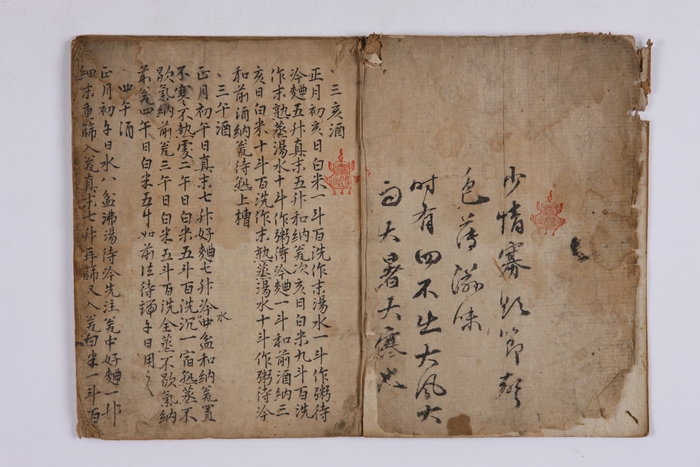 少情寡欲節聲
色薄滋味
時有四不出大風大
雨大暑大寒也
、三亥酒
正月初亥日白米一斗百洗作末湯水一斗作粥待
冷麯五升真末五升和納瓮次亥日白米九斗百洗
作末熟蒸湯水十斗作粥待冷麯一斗和前酒納三
亥日白米十斗百洗作末熟蒸湯水十斗作粥待冷
和前酒納瓮待熟上槽
、三午酒
正月初午日真末七升好麯七升冷水四盆和納瓮置
不寒不熱處二午日白米五斗百洗沉一宿熟蒸不
歇氣納前瓮三午日白米五斗百洗全蒸不歇氣納
前瓮四午日白米五斗如前法待端午日用之
四午酒
正月初午日水八盆沸湯待冷先注瓮中好麯一升
細末重篩入瓮真末七升再篩又入瓮白米一斗百